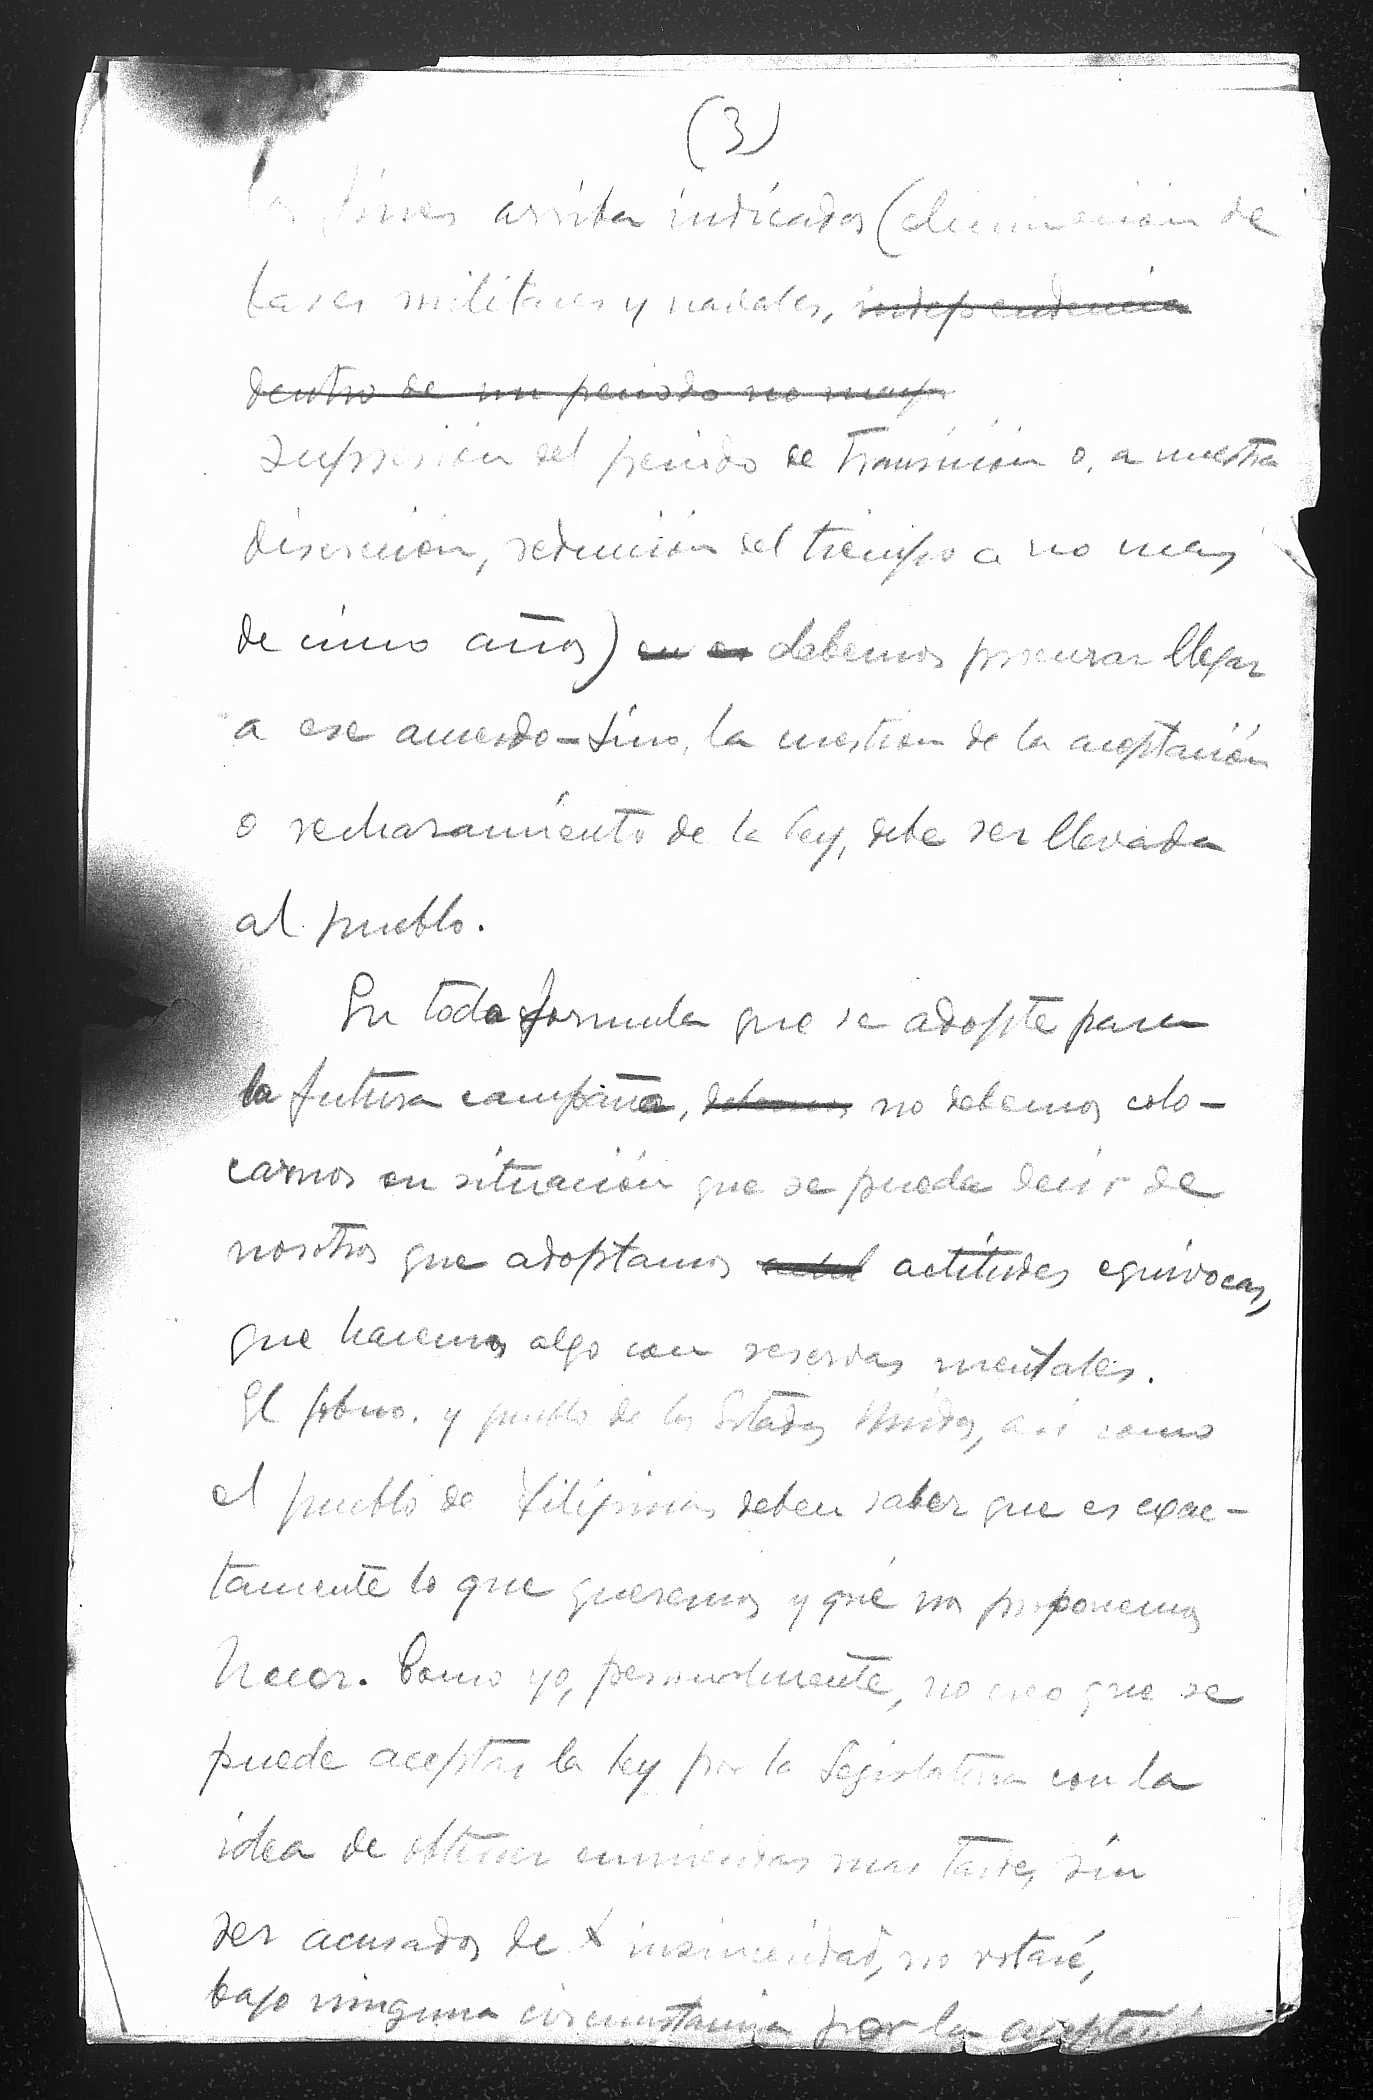 (3)
los fines arriba indicados (eliminación de
bases militares y navales, independencia
dentro de un periodo no mayor
supresión del periodo de transición o, a nuestra
discreción, reducción del tiempo a no mas
de cinco años) en es debemos procurar llegar
a ese acuerdo – Sino, la cuestion de la aceptación
o rechazamiento de la ley, debe ser llevada
al pueblo.
En toda formula que se adopte para
la futura campaña, debemos no debemos colo-
carnos en situación que se pueda decir de
nosotros que adoptamos actitudes equivocas,
que hacemos algo con reservas mentales.
El gobno. y pueblo de los Estados Unidos, así como
el pueblo de Filipinas deben saber que es exac-
tamente lo que queremos y qué nos proponemos
hacer. Como yo, personalmente, no creo que se
puede aceptar la ley por la Legislatura con la
idea de obtener enmiendas mas tarde, sin
ser acusados de insinceridad, no votaré,
bajo ninguna circunstancia por la